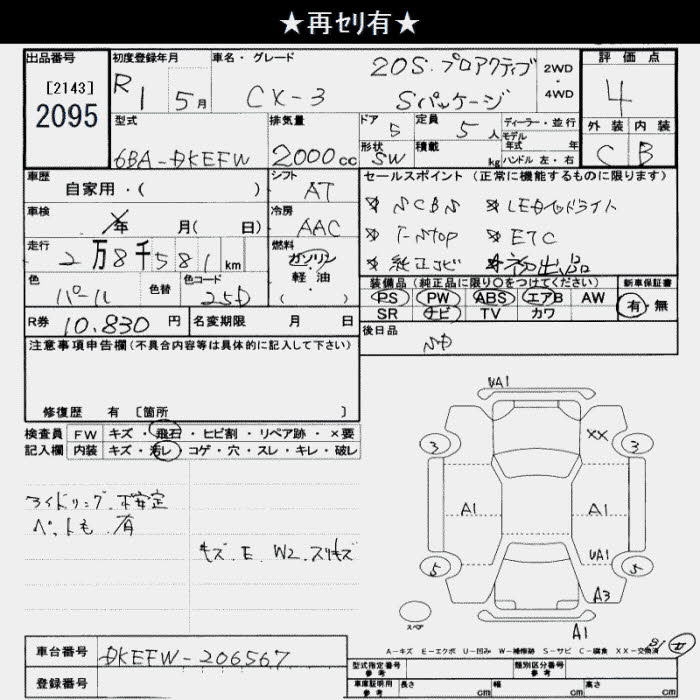 ★再セリ有★
出品番号 初度登録年月 車名・グレード 評価点
[2143]
2095
R1 5月 CX-3 20S.プロアクティブ Sパッケージ 2WD・4WD 4
型式 排気量 ドア 5 定員 5人 ディーラー・並行
モデル年式 年
外装 内装
6BA-DKEFW 2000cc 形状 SW 積載 kg ハンドル 左・右 C B
車歴 自家用・( ) シフト AT
セールスポイント (正常に機能するものに限ります)
SCBS LEDヘッドライト
車検 年 月( 日) 冷房 AAC
i-stop ETC
走行 2万8千581km 燃料 ガソリン・軽油・( )
純正ナビ 初出品
色 パール 色替 色コード 25D
装備品(純正品に限り○をつけてください) 新車保証書
PS PW ABS エアB AW 有・無
SR ナビ TV カワ
R券 10,830円 名変期限 月 日
後日品
注意事項申告欄(不具合内容等は具体的に記入して下さい)
修復歴 有 [箇所 ]
検査員 FW キズ・飛石・ヒビ割・リペア跡・×要
記入欄 内装 キズ・汚レ・コゲ・穴・スレ・キレ・破レ
アイドリング.不安定
ペットも.有
キズ.E.W2.スリキズ
UA1
3 XX 3
A1 A1
UA1
5 5
A3
スペア
A1
A-キズ E-エクボ U-凹み W-補修跡 S-サビ C-腐食 XX-交換済
車台番号 DKEFW-206567
登録番号
型式指定番号 参考 類別区分番号 参考
車庫証明用 参考 長さ cm 幅 cm 高さ cm